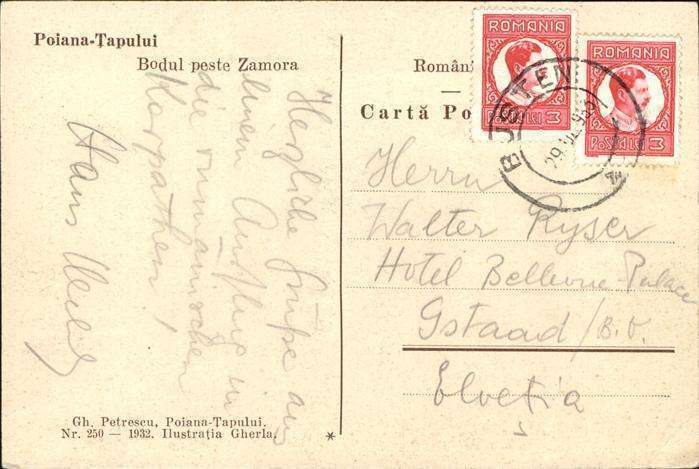 Poiana-Țapului
Bodul peste Zamora
Herzliche Grüße aus
einem Ausflug in
die rumänischen
Karpathen,
Hans
Gh. Petrescu, Poiana-Țapului.
Nr. 250 — 1932. Ilustrația Gherla.
*
Român
Cartă Po
ROMANIA
POSTA LEI 3
ROMANIA
POSTA LEI 3
BUSTENI
Herrn
Walter Ryser
Hotel Bellevue-Palace
Gstaad / B.O.
Elveția